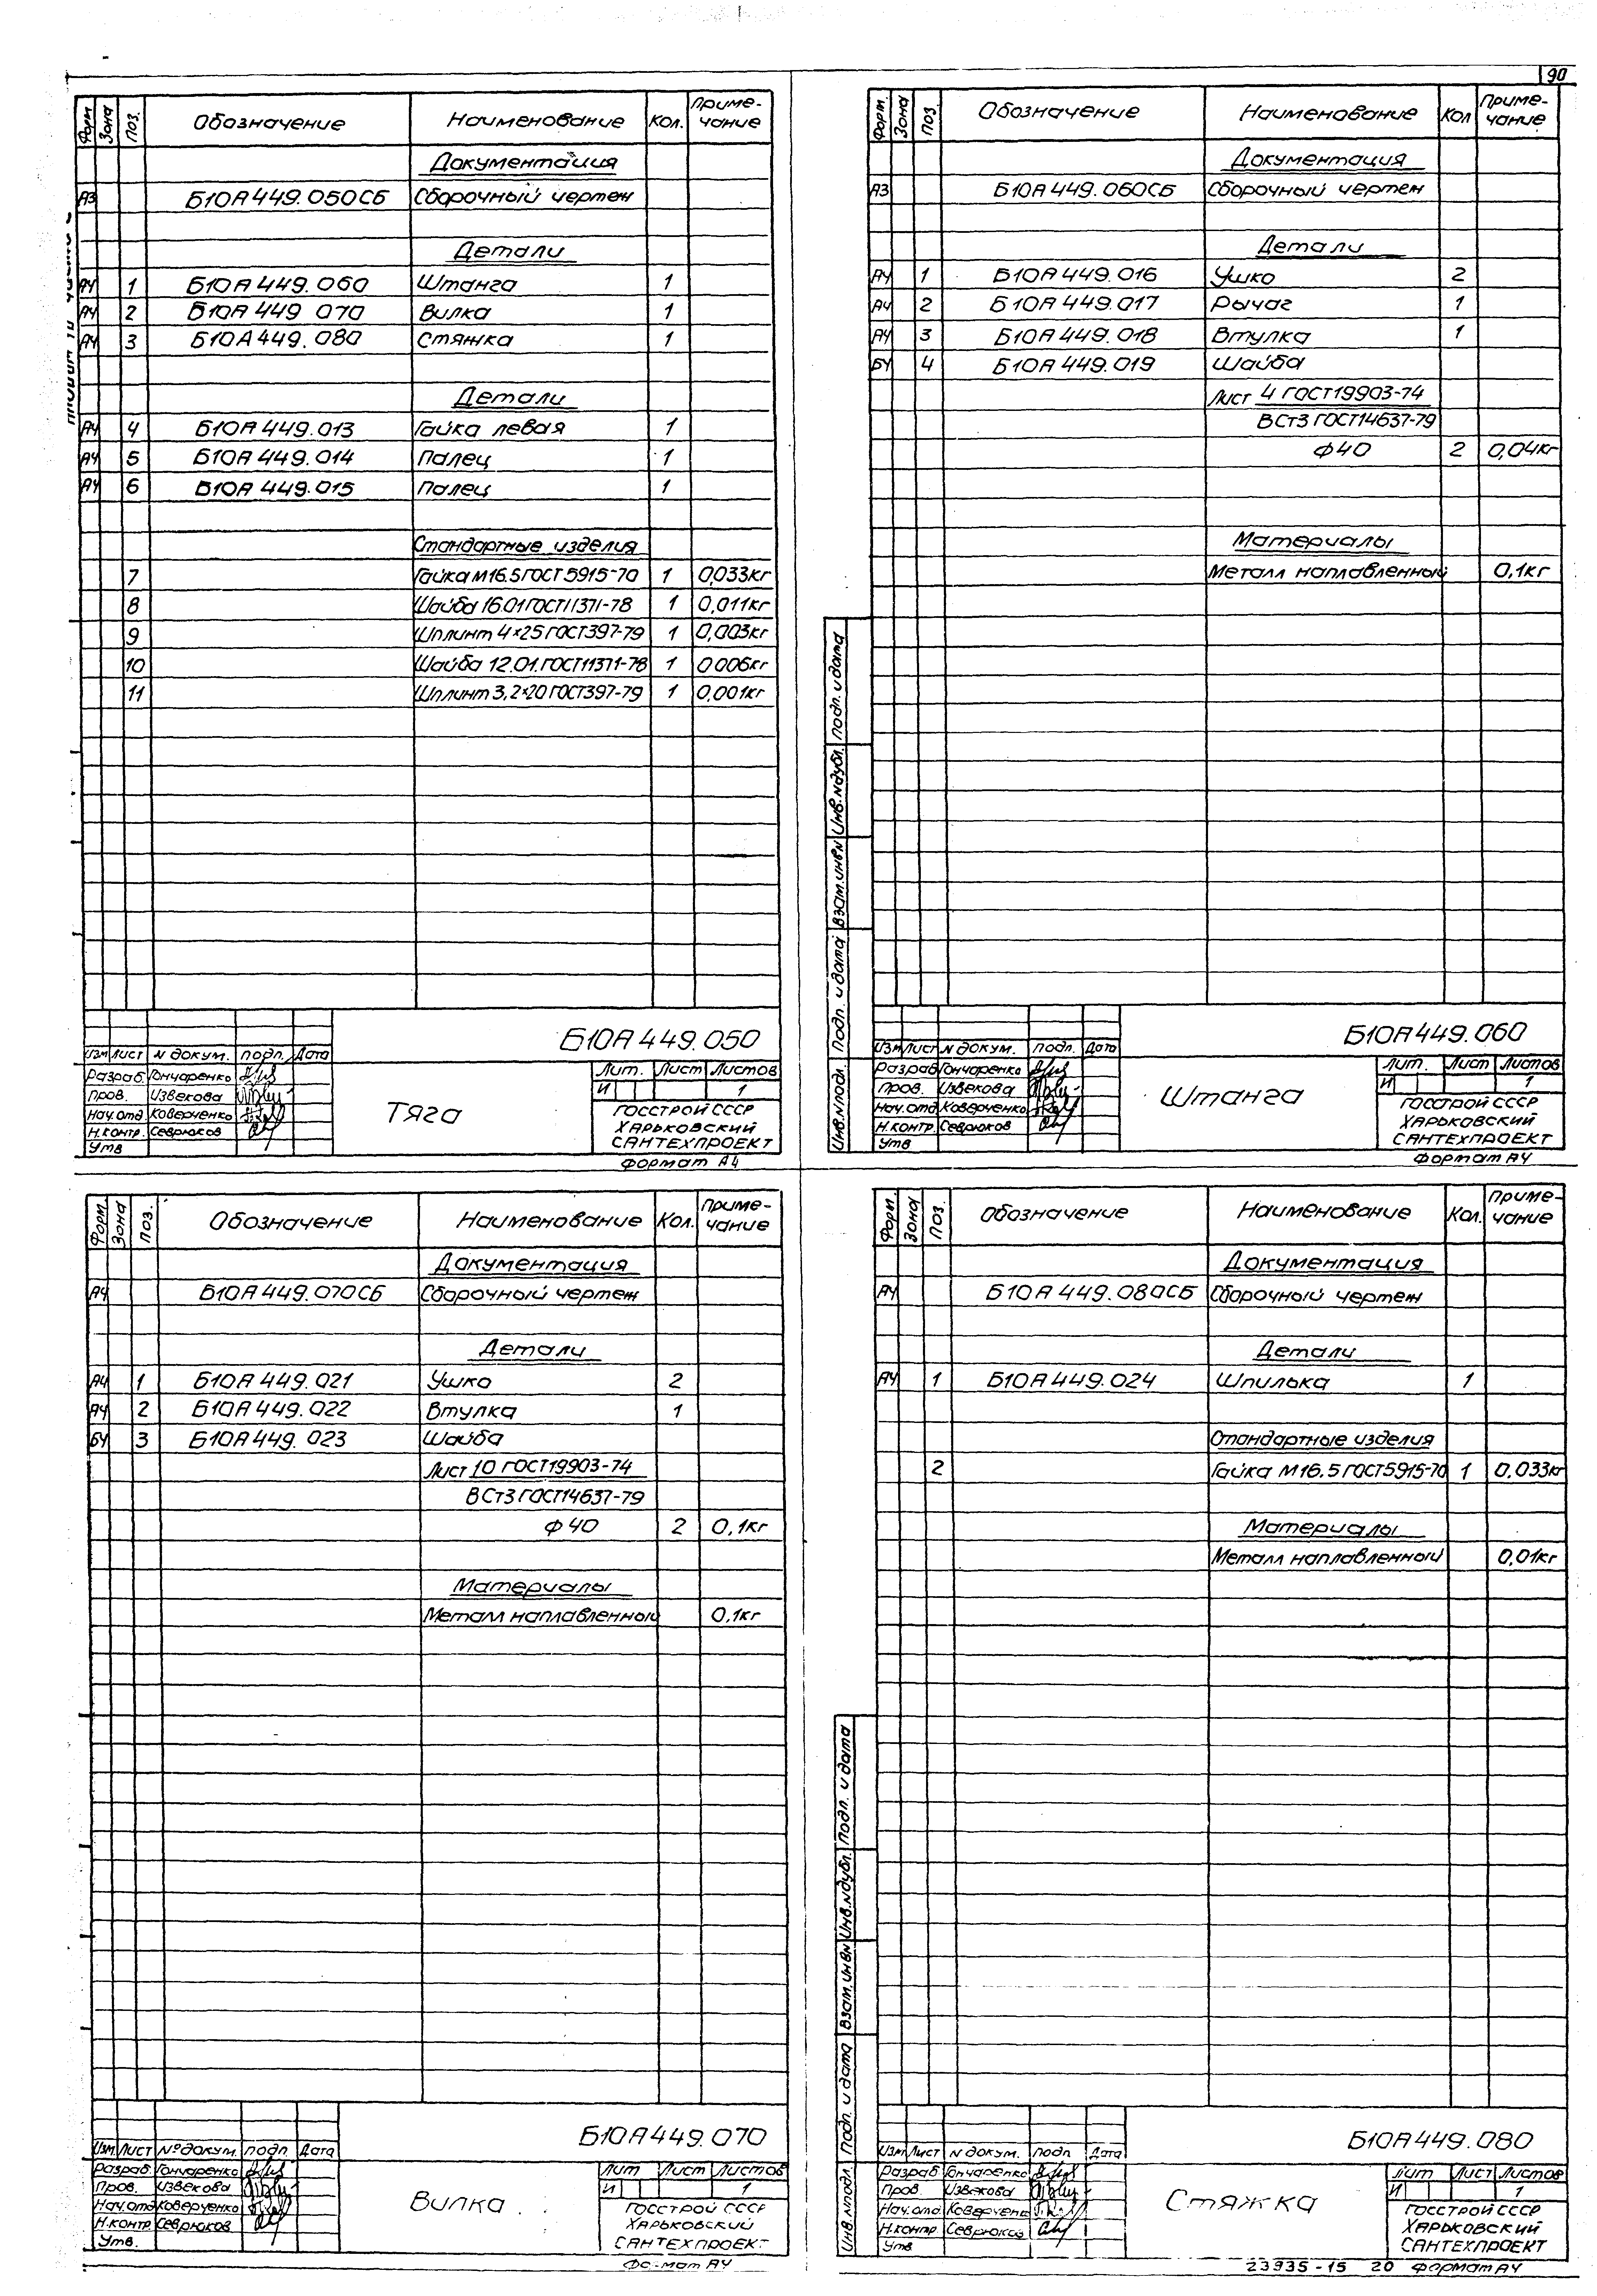 90
Форм. Зона Поз. Обозначение Наименование Кол. Приме-
чание
Документация
А3 Б10А449.050СБ Сборочный чертеж
Детали
А4 1 Б10А449.060 Штанга 1
А4 2 Б10А449 070 Вилка 1
А4 3 Б10А449.080 Стяжка 1
Детали
А4 4 Б10А449.013 Гайка левая 1
А4 5 Б10А449.014 Палец 1
А4 6 Б10А449.015 Палец 1
Стандартные изделия
7 Гайка М16.5 ГОСТ 5915-70 1 0,033кг
8 Шайба 16.01 ГОСТ11371-78 1 0,011кг
9 Шплинт 4×25 ГОСТ397-79 1 0,003кг
10 Шайба 12.01.ГОСТ11371-78 1 0 006кг
11 Шплинт 3,2×20 ГОСТ397-79 1 0,001кг
Б10А449.050
Изм Лист N докум. Подп. Дата
Разраб. Гончаренко
Пров. Извекова
Нач.отд Коверченко
Н.контр. Севрюков
Утв
Тяга
Лит. Лист Листов
И 1
ГОССТРОЙ СССР
ХАРЬКОВСКИЙ
САНТЕХПРОЕКТ
Формат А4
Форм. Зона Поз Обозначение Наименование Кол Приме-
чание
Документация
А3 Б10А449.060СБ Сборочный чертеж
Детали
А4 1 Б10А449.016 Ушко 2
А4 2 Б10А449.017 Рычаг 1
А4 3 Б10А449.018 Втулка 1
БЧ 4 Б10А449.019 Шайба
Лист 4 ГОСТ19903-74
ВСт3 ГОСТ14637-79
Ф40 2 0,04кг
Материалы
Металл наплавленный 0,1кг
Инв.Nподл. Подп. и дата Взам.инвN Инв.Nдубл. Подп. и дата
Б10А449.060
Изм Лист N докум. Подп. Дата
Разраб Гончаренко
Пров. Извекова
Нач.отд Коверченко
Н.контр. Севрюков
Утв
Штанга
Лит. Лист Листов
И 1
ГОССТРОЙ СССР
ХАРЬКОВСКИЙ
САНТЕХПРОЕКТ
Формат А4
Форм. Зона Поз. Обозначение Наименование Кол. Приме-
чание
Документация
А4 Б10А449.070СБ Сборочный чертеж
Детали
А4 1 Б10А449.021 Ушко 2
А4 2 Б10А449.022 Втулка 1
БЧ 3 Б10А449.023 Шайба
Лист 10 ГОСТ19903-74
ВСт3 ГОСТ14637-79
Ф40 2 0,1кг
Материалы
Металл наплавленный 0,1кг
Б10А449.070
Изм. Лист №докум. Подп Дата
Разраб. Гончаренко
Пров. Извекова
Нач.отд Коверченко
Н.контр Севрюков
Утв.
Вилка
Лит Лист Листов
И 1
ГОССТРОЙ СССР
ХАРЬКОВСКИЙ
САНТЕХПРОЕКТ
Формат А4
Форм. Зона Поз. Обозначение Наименование Кол. Приме-
чание
Документация
А4 Б10А449.080СБ Сборочный чертеж
Детали
А4 1 Б10А449.024 Шпилька 1
Стандартные изделия
2 Гайка М16.5 ГОСТ5915-70 1 0,033кг
Материалы
Металл наплавленный 0,01кг
Инв.Nподл. Подп. и дата Взам.инвN Инв.Nдубл. Подп. и дата
Б10А449.080
Изм Лист N докум. Подп Дата
Разраб Гончаренко
Пров Извекова
Нач.отд Коверченко
Н.контр Севрюков
Утв
Стяжка
Лит Лист Листов
И 1
ГОССТРОЙ СССР
ХАРЬКОВСКИЙ
САНТЕХПРОЕКТ
23935-15 20 Формат А4